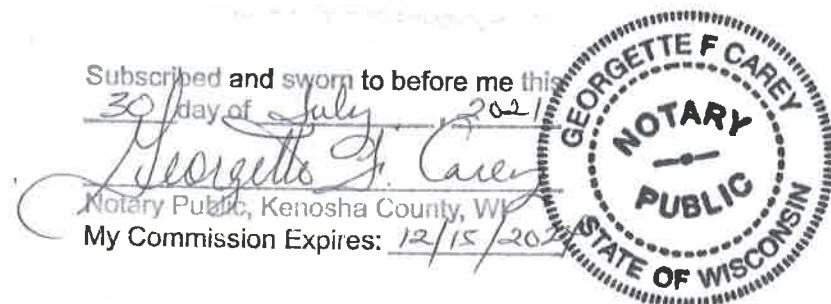 Subscribed and sworn to before me this
30 day of July, 2021
Georgette F. Carey
Notary Public, Kenosha County, WI
My Commission Expires: 12/15/
GEORGETTE F CAREY
NOTARY
PUBLIC
STATE OF WISCONSIN